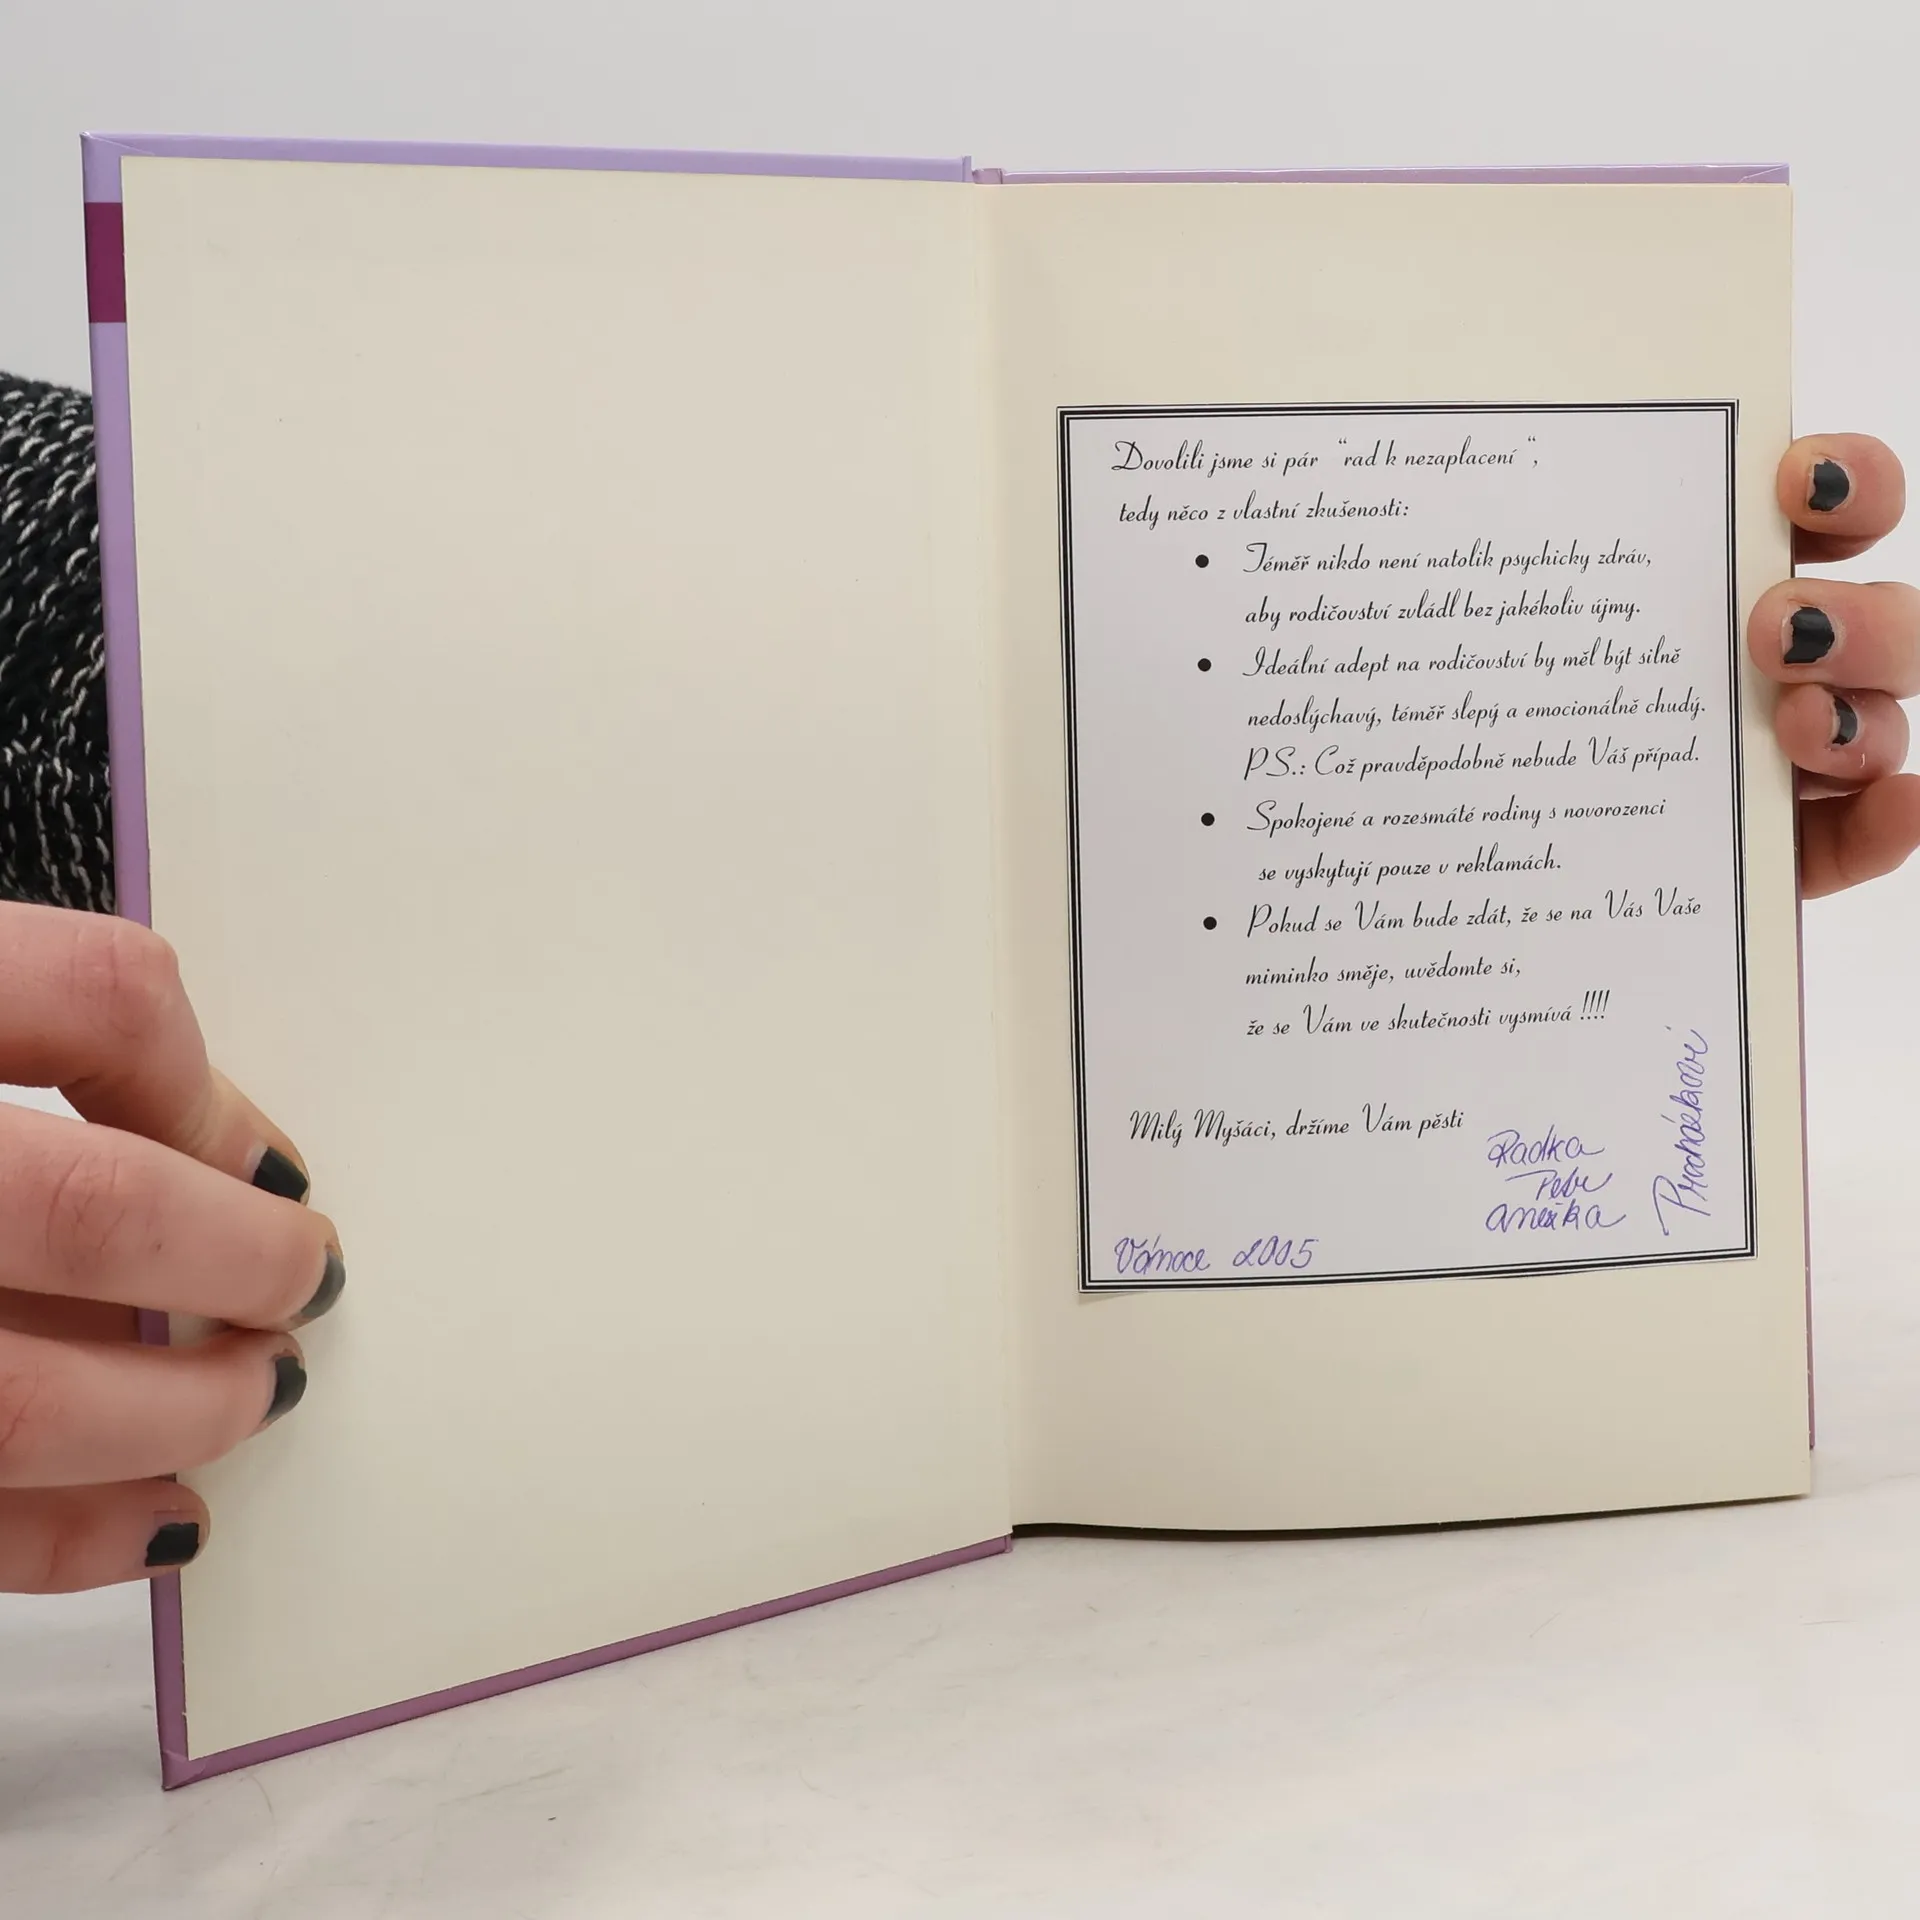 Dovolili jsme si pár “rad k nezaplacení “,
tedy něco z vlastní zkušenosti:
● Téměř nikdo není natolik psychicky zdráv,
aby rodičovství zvládl bez jakékoliv újmy.
● Ideální adept na rodičovství by měl být silně
nedoslýchavý, téměř slepý a emocionálně chudý.
PS.: Což pravděpodobně nebude Váš případ.
● Spokojené a rozesmáté rodiny s novorozenci
se vyskytují pouze v reklamách.
● Pokud se Vám bude zdát, že se na Vás Vaše
miminko směje, uvědomte si,
že se Vám ve skutečnosti vysmívá !!!!
Milý Myšáci, držíme Vám pěsti
Radka
Petr
Anežka
Procházkovi
Vánoce 2005